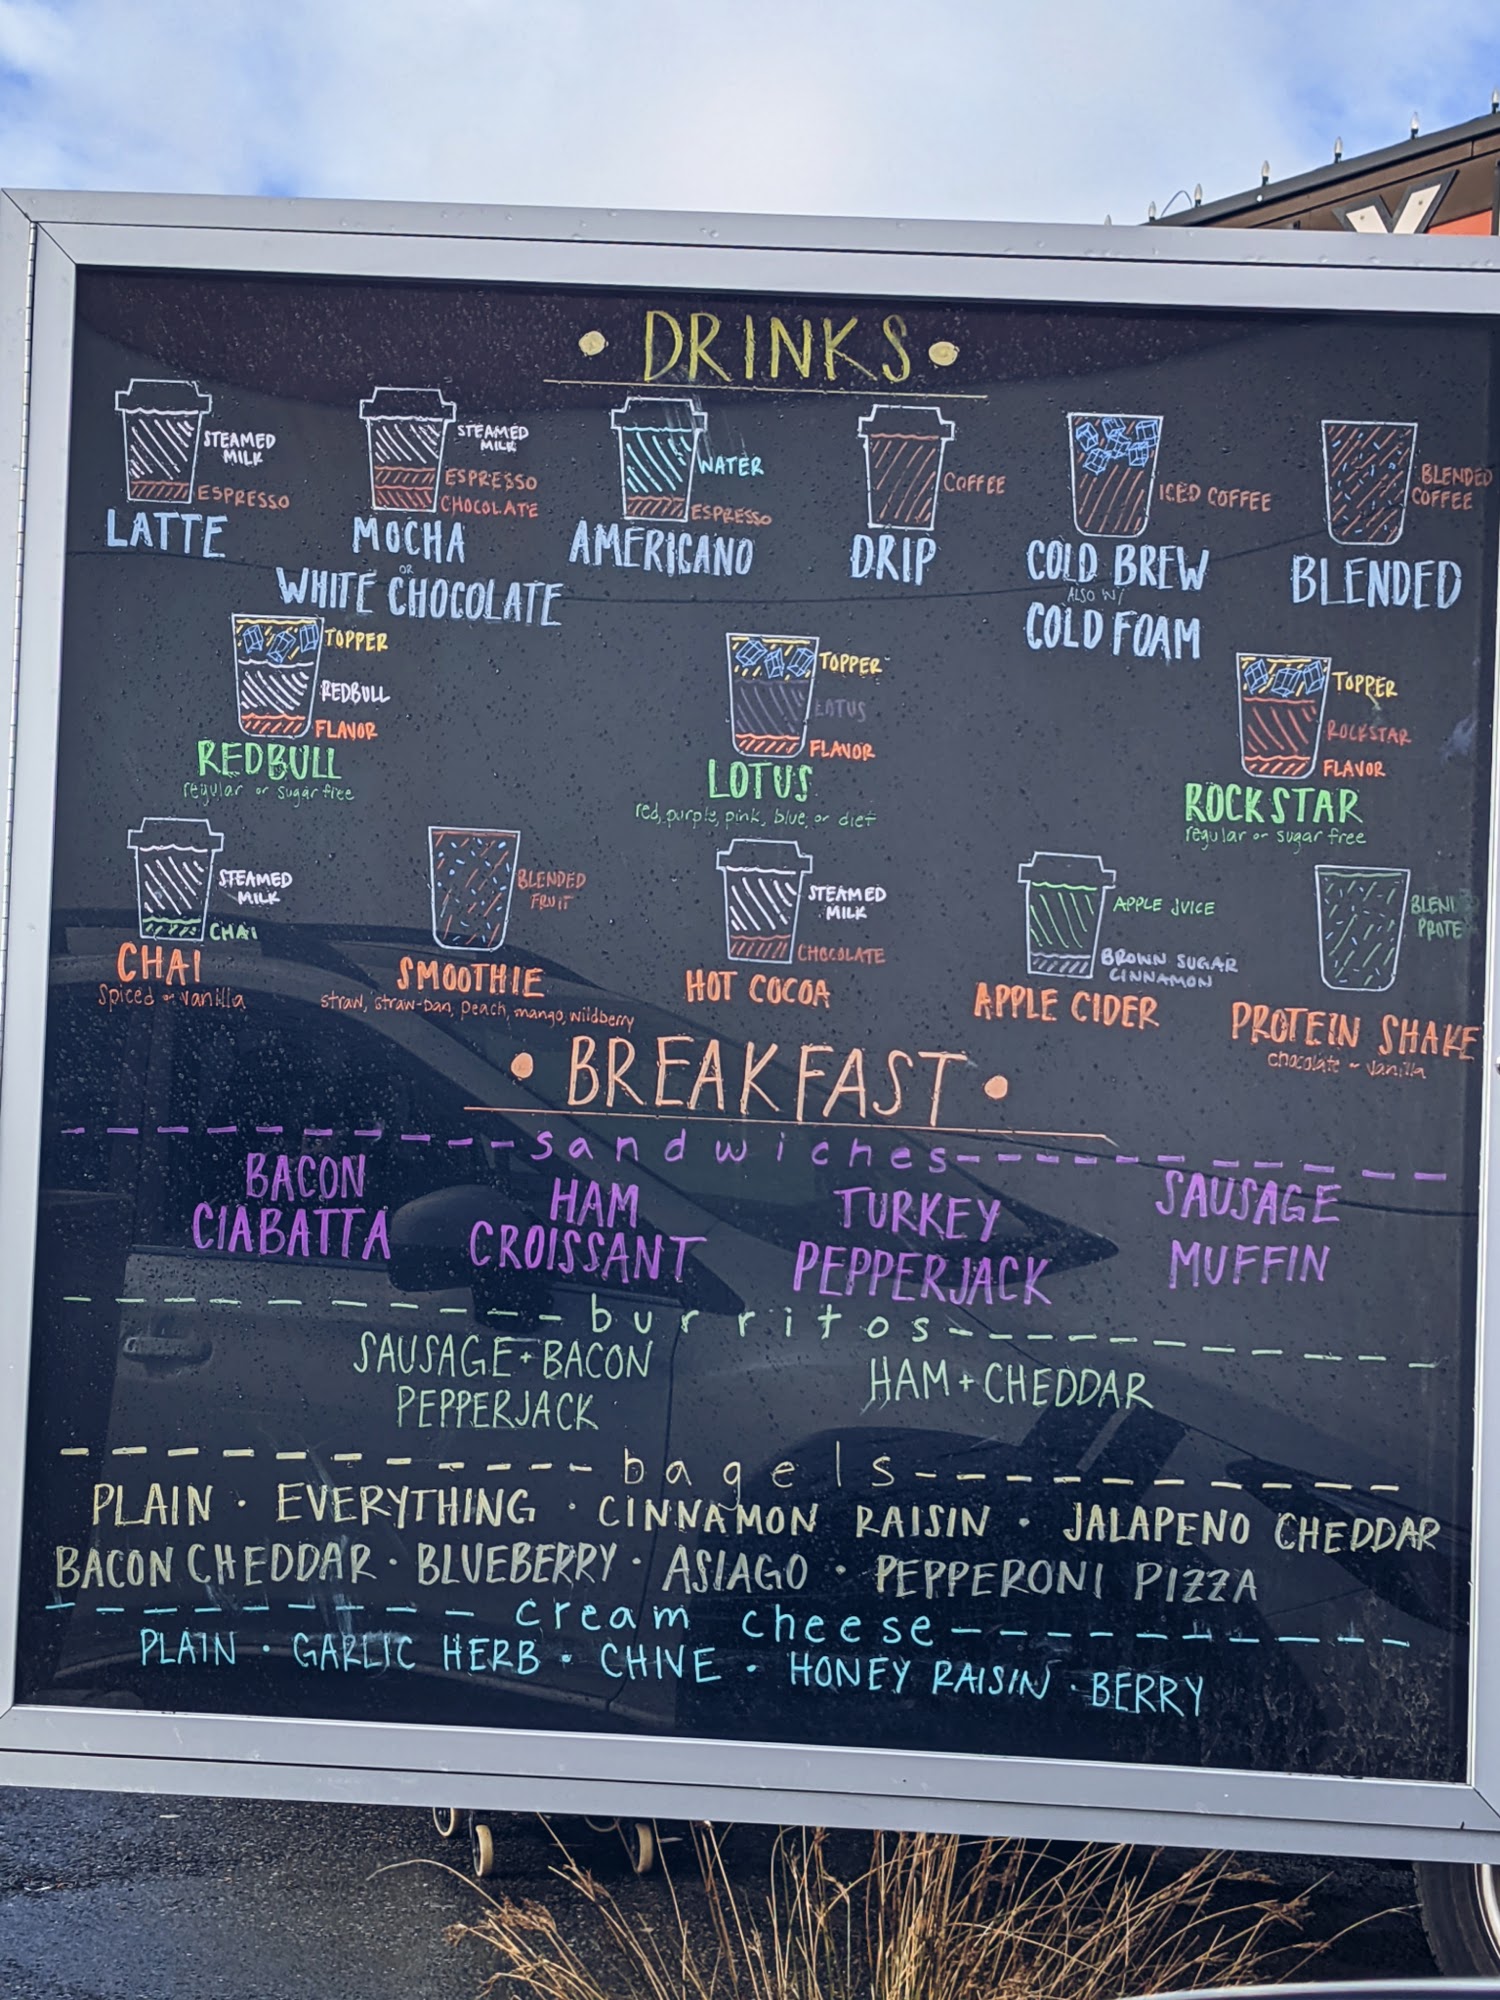 DRINKS
STEAMED
MILK
ESPRESSO
LATTE
STEAMED
MILK
ESPRESSO
CHOCOLATE
MOCHA
OR
WHITE CHOCOLATE
WATER
ESPRESSO
AMERICANO
COFFEE
DRIP
ICED COFFEE
COLD BREW
ALSO W/
COLD FOAM
BLENDED
COFFEE
BLENDED
TOPPER
REDBULL
FLAVOR
REDBULL
regular or sugar free
TOPPER
LOTUS
FLAVOR
LOTUS
red, purple, pink, blue, or diet
TOPPER
ROCKSTAR
FLAVOR
ROCKSTAR
regular or sugar free
STEAMED
MILK
CHAI
CHAI
Spiced or vanilla
BLENDED
FRUIT
SMOOTHIE
straw, straw-ban, peach, mango, wildberry
STEAMED
MILK
CHOCOLATE
HOT COCOA
APPLE JUICE
BROWN SUGAR
CINNAMON
APPLE CIDER
PROTEIN SHAKE
chocolate or vanilla
• BREAKFAST •
sandwiches
BACON
CIABATTA
HAM
CROISSANT
TURKEY
PEPPERJACK
SAUSAGE
MUFFIN
burritos
SAUSAGE + BACON
PEPPERJACK
HAM + CHEDDAR
bagels
PLAIN • EVERYTHING • CINNAMON RAISIN • JALAPENO CHEDDAR
BACON CHEDDAR • BLUEBERRY • ASIAGO • PEPPERONI PIZZA
cream cheese
PLAIN • GARLIC HERB • CHIVE • HONEY RAISIN • BERRY